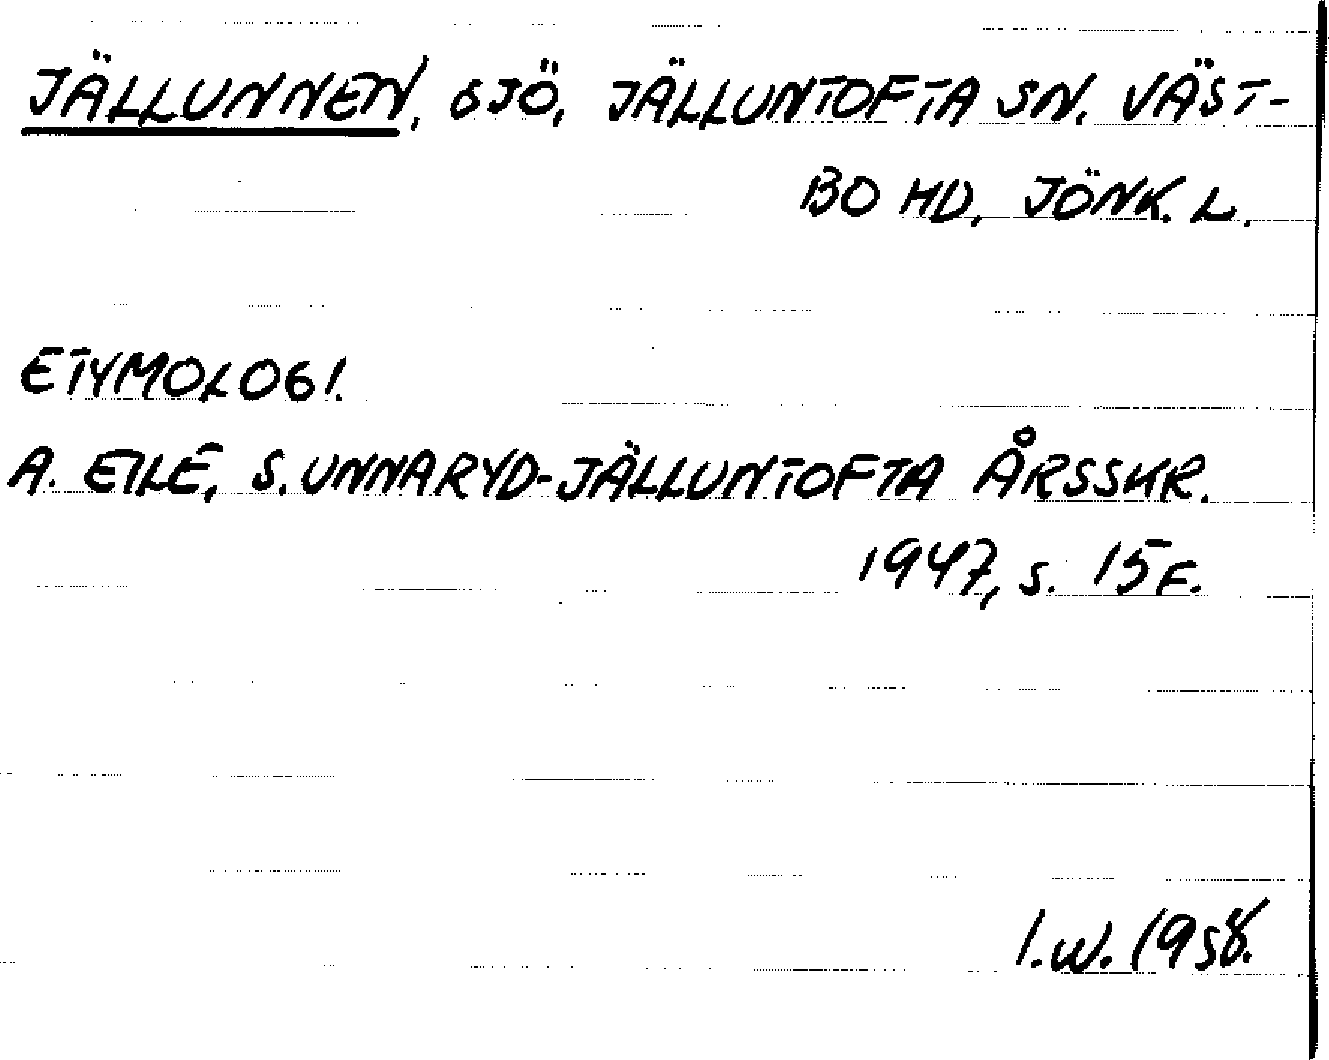 JÄLLUNNEN, SJÖ, JÄLLUNTOFTA SN. VÄST-
BO HD, JÖNK. L.
ETYMOLOGI.
A. EILE, S. UNNARYD-JÄLLUNTOFTA ÅRSSKR.
1947, S. 15 F.
I.W. 1958.